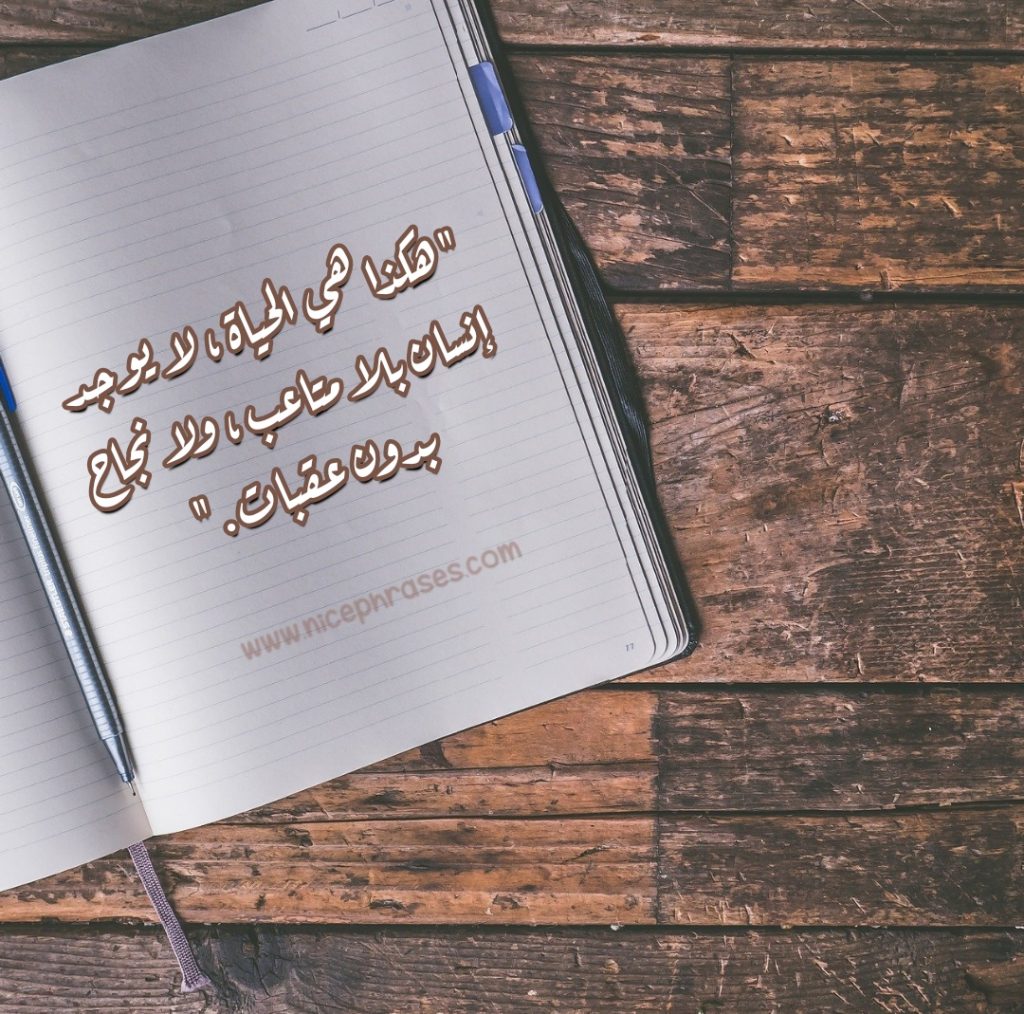 "هكذا هي الحياة، لا يوجد
إنسان بلا متاعب، ولا نجاح
بدون عقبات. "
www.nicephrases.com
77